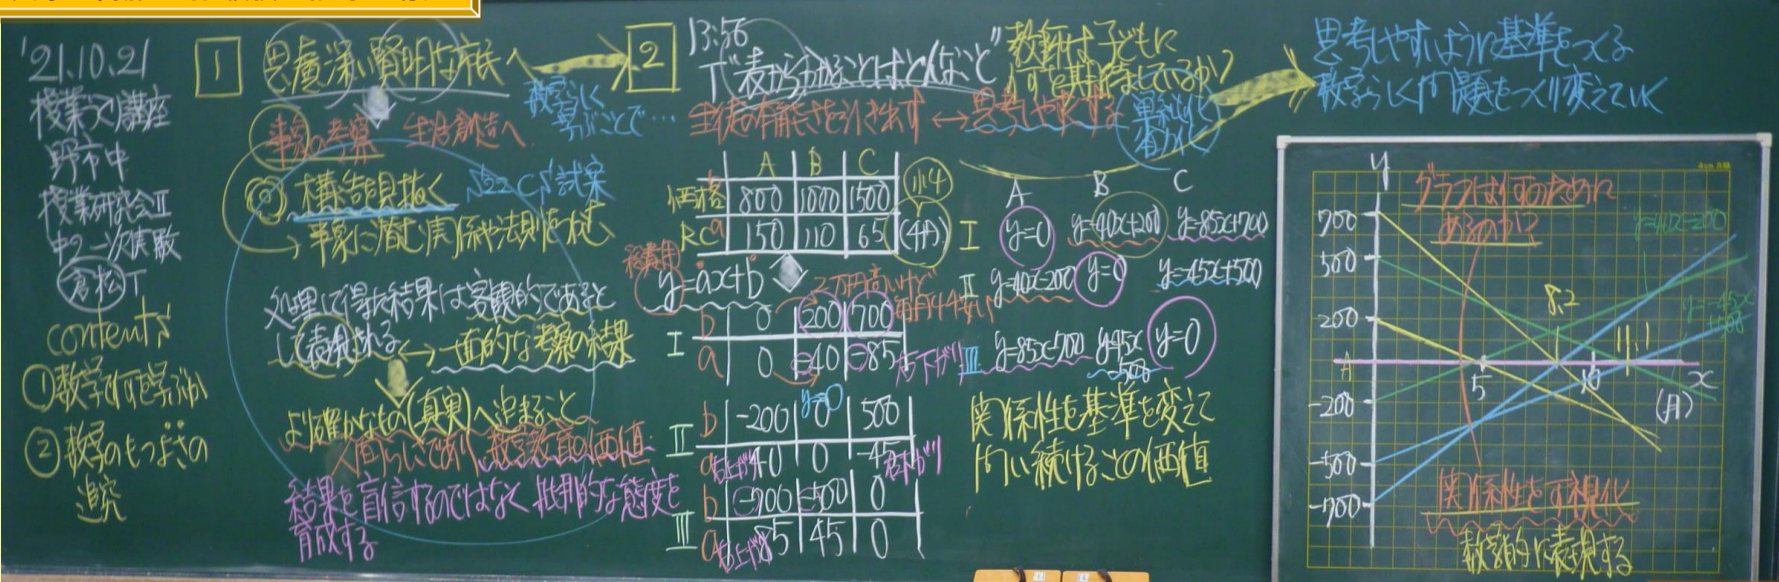 '21.10.21
授業づくり講座
野市中
授業研究会Ⅱ
中2一次関数
倉松T
contents
①数学で何を学ぶか
②数学のもつよさの
追究
1
思慮深い賢明な市民へ
事象の考察 生活創造へ
数学らしく
学ぶことで…
◎構造を見抜く
'22 CS試案
→事象に潜む関係や法則
処理して得た結果は客観的であると
して表現される ↔ 一面的な考察の結果
より確かなもの(真実)へ迫ること
人間らしいであり、数学教育の価値
結果を盲信するのではなく批判的な態度を
育成する
2
13:56
T“表から分かることはどんなこと”
教師は子どもに
何を期待しているか?
↔思考しやすくする
単純化して
思考しやすいように基準をつくる
数学らしく問題をつくり変えていく
A B C
価格 800 1000 1500
RC 150 110 65
小4
(4月)
総費用
y=ax+b
Ⅰ
b 0 200 700
a 0 -40 -85
右下がり
y=0
Ⅱ
b -200 0 500
a 40 0 -45
右上がり
右下がり
Ⅲ
b -700 -500 0
a 85 45 0
右上がり
A B C
Ⅰ y=0 y=-40x+200 y=-85x+700
Ⅱ y=40x-200 y=0 y=-45x+500
Ⅲ y=85x-700 y=45x-500 y=0
関係性を基準を変えて
問い続けることの価値
グラフは何のために
あるのか?
y
700
500
200
A
-200
-500
-700
5
10
8.2
11.1
x
(月)
y=40x-200
y=-45x
+500
関係性を可視化
数学的に表現する